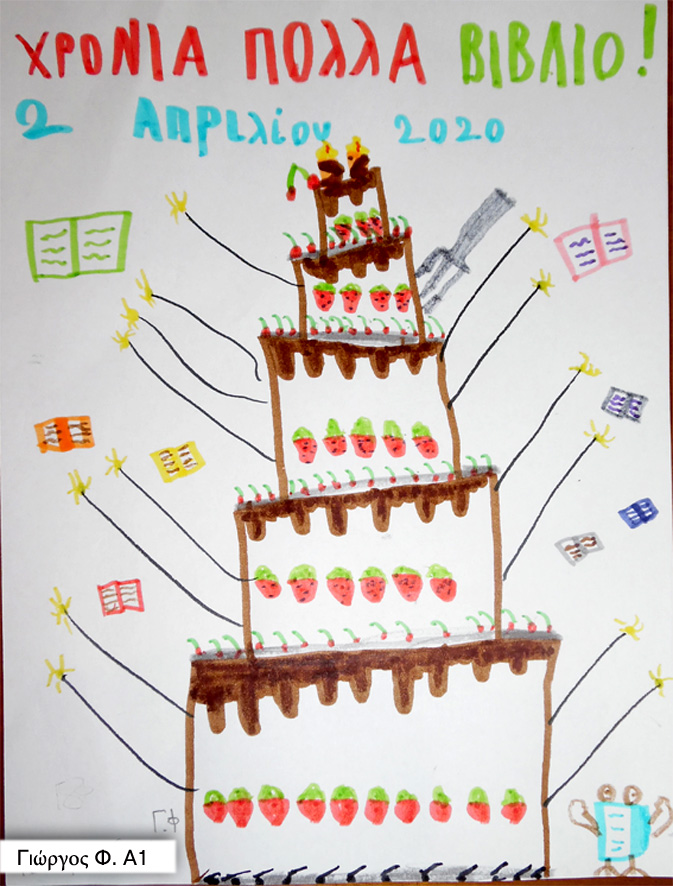 ΧΡΟΝΙΑ ΠΟΛΛΑ ΒΙΒΛΙΟ!
2 Απριλίου 2020
Γ.Φ
Γιώργος Φ. Α1